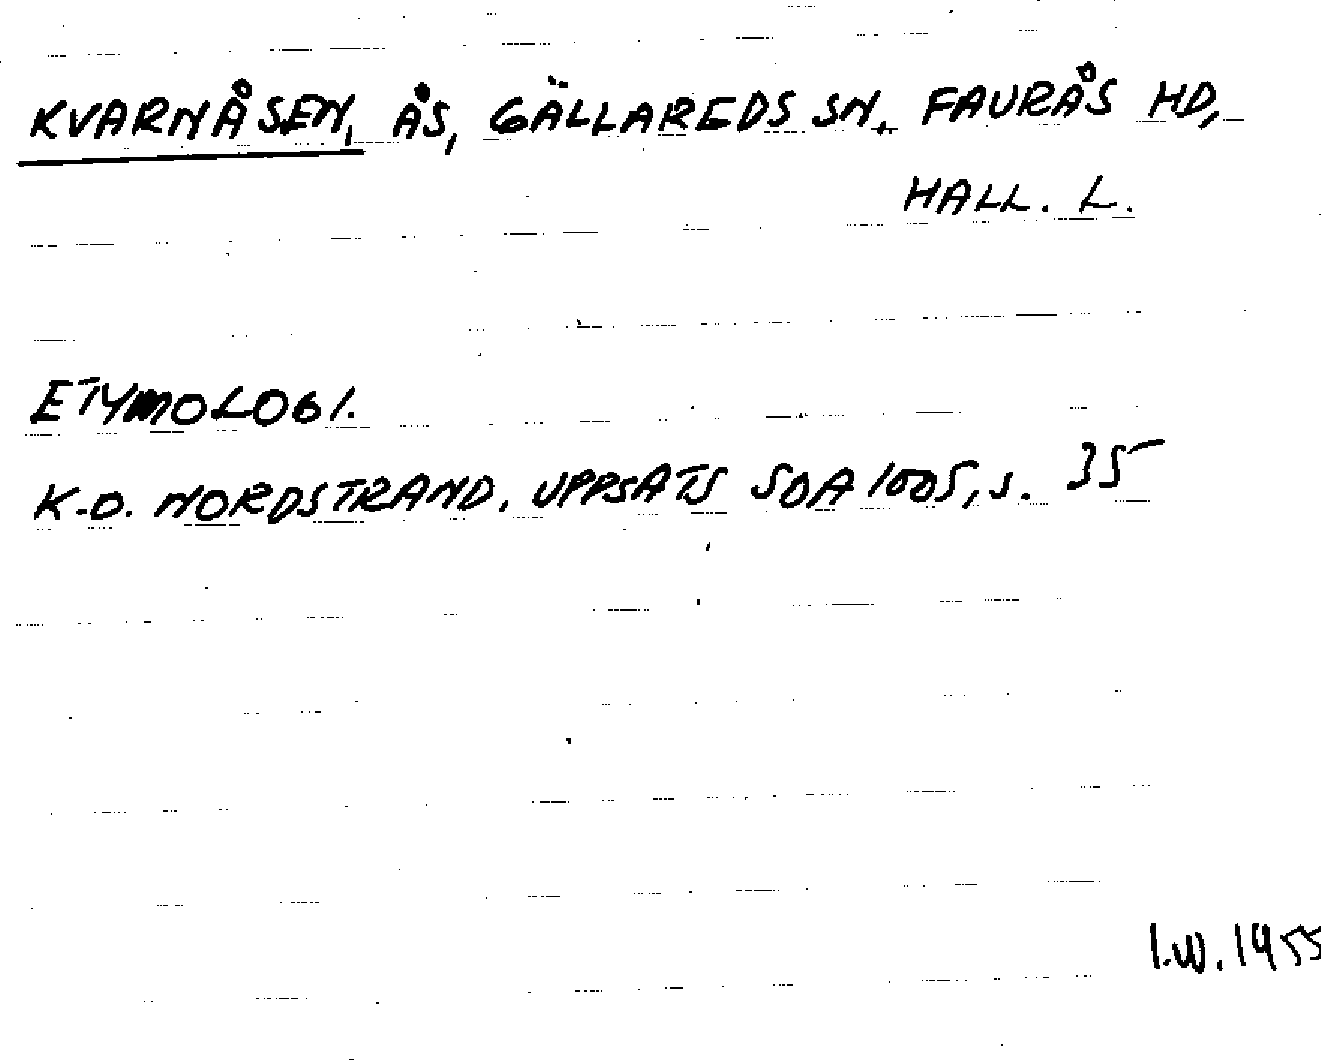 KVARNÅSEN, ÅS, GÄLLAREDS SN. FAURÅS HD,
HALL. L.
ETYMOLOGI.
K-O. NORDSTRAND, UPPSATS SOA 1005, s. 35
I.W. 1955